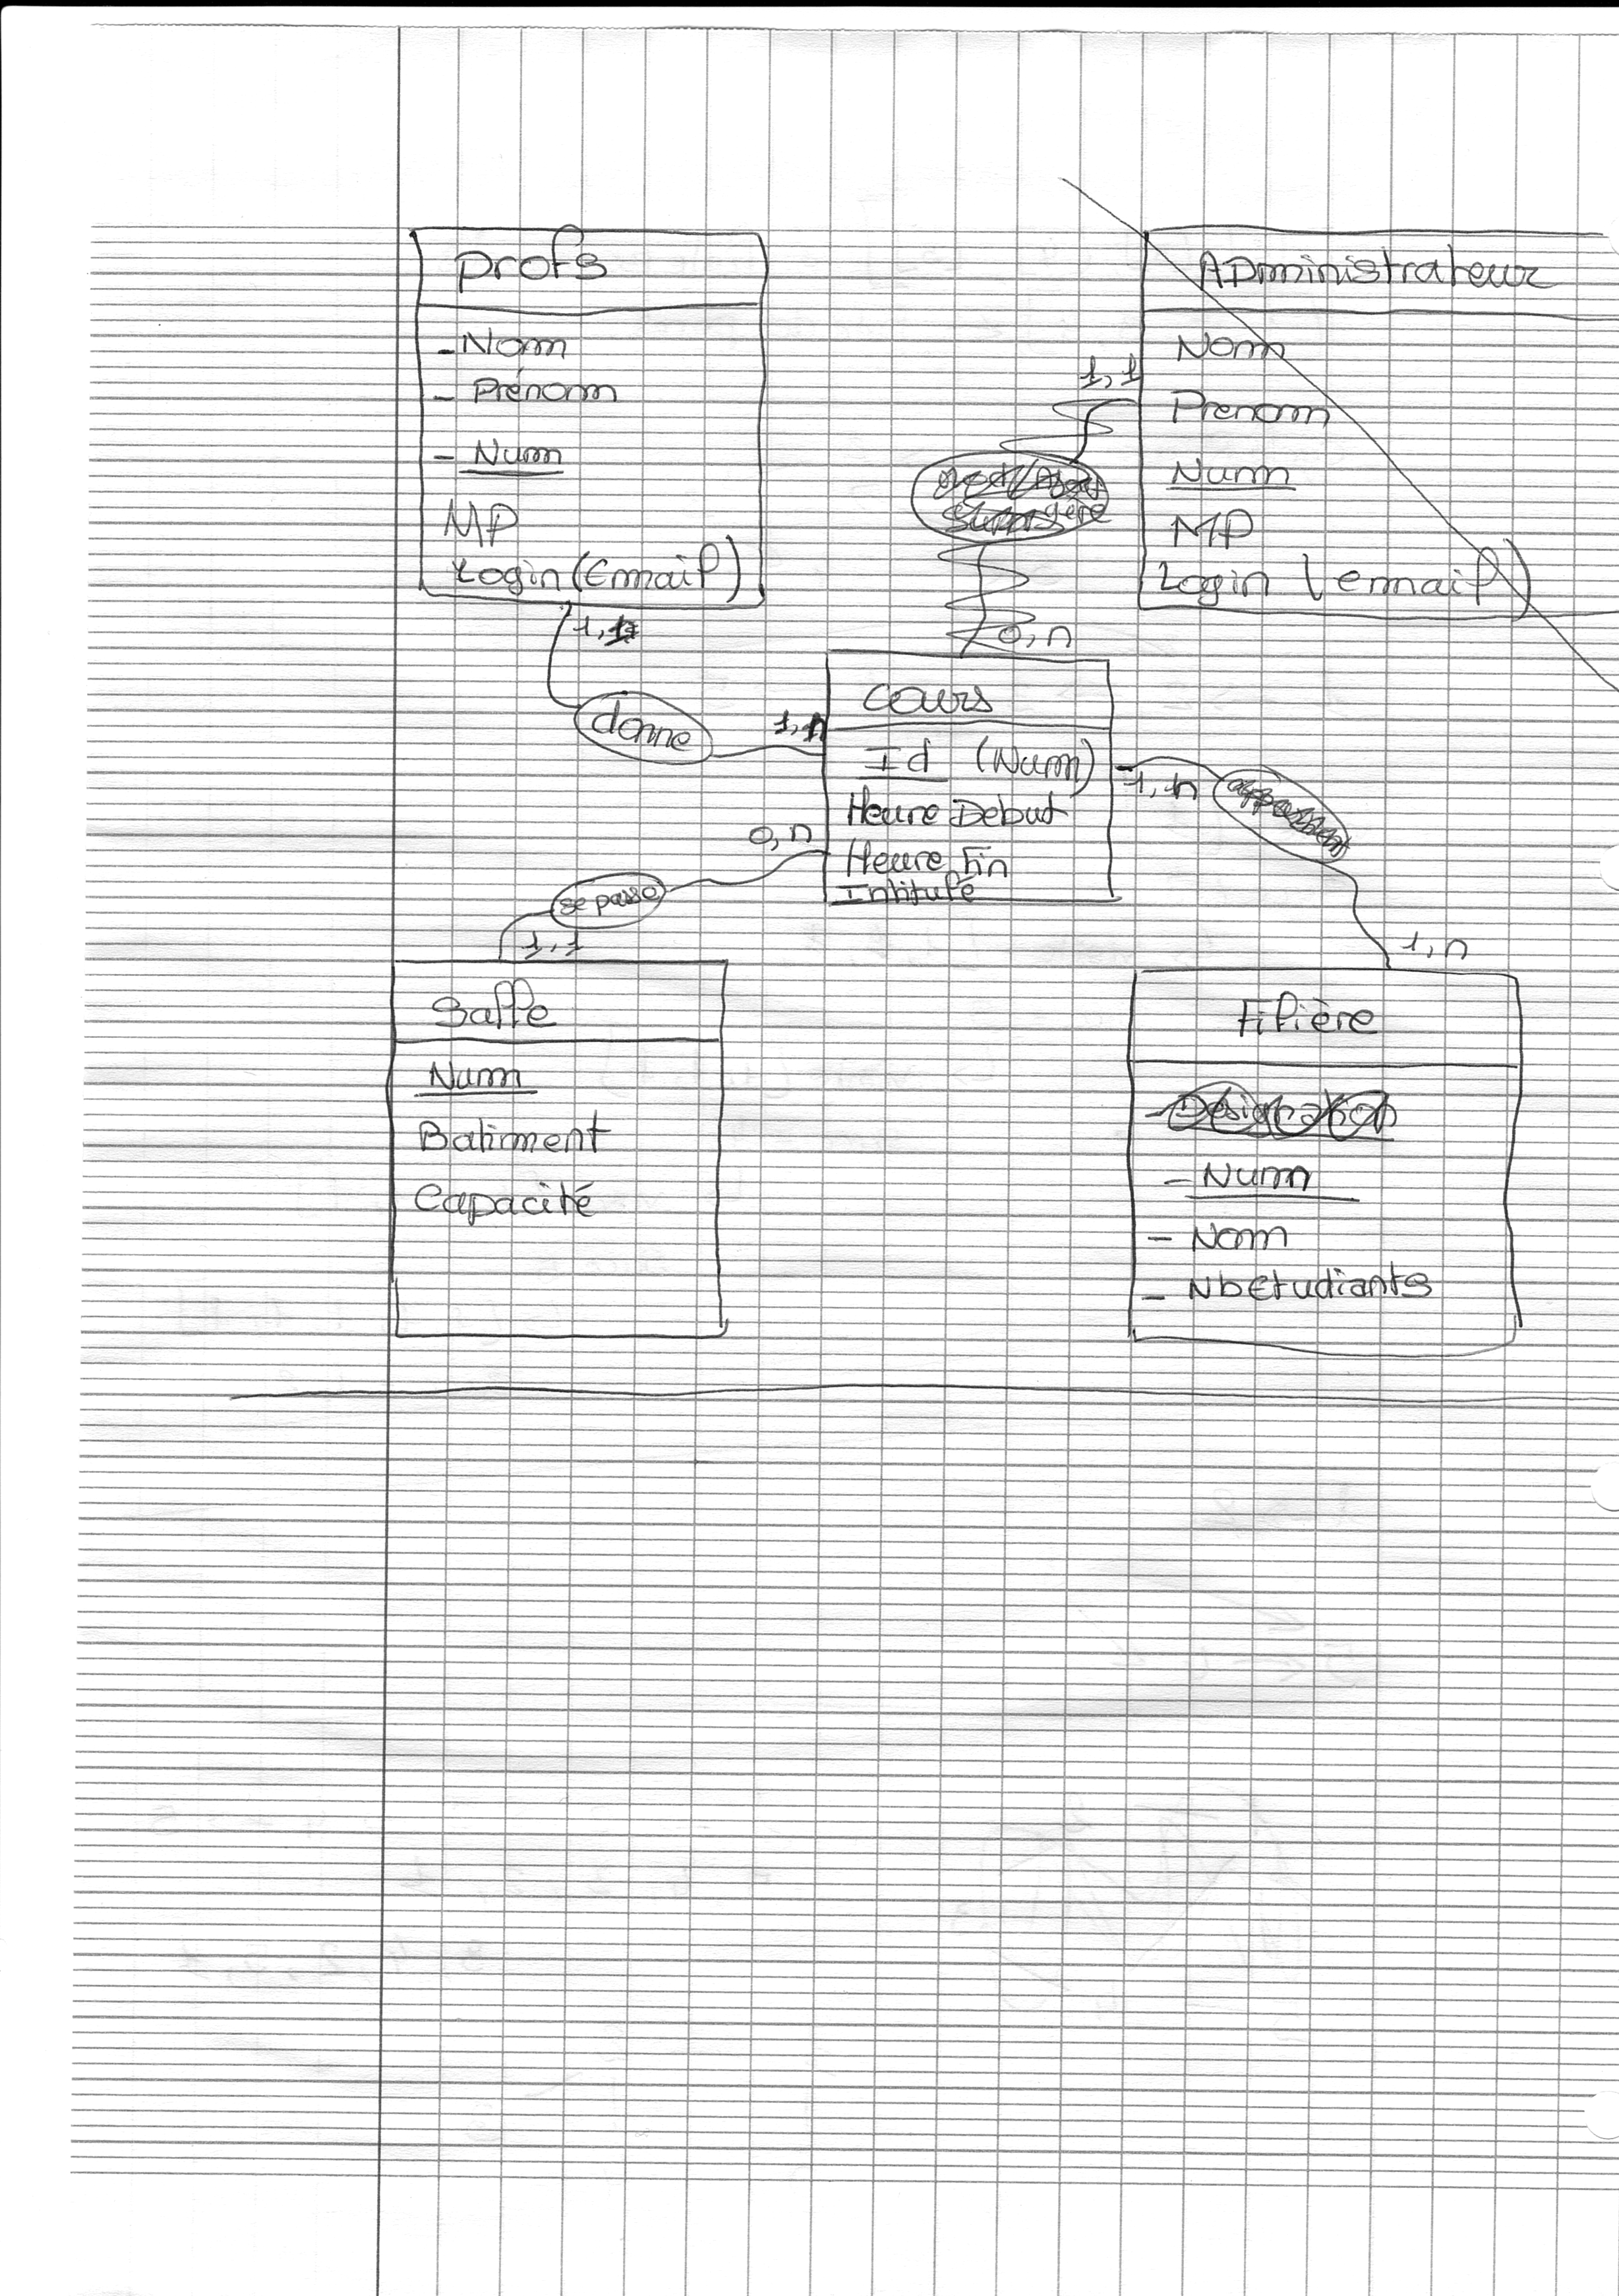 Profs
- Nom
- Prénom
- Num
MP
Login (Email)
1,1
Administrateur
Nom
Prenom
Num
MP
Login (email)
1,1
gère
0,n
donne
1,n
Cours
Id (Num)
Heure Debut
Heure Fin
Intitulé
1,n
1,n
0,n
se passe
1,1
Salle
Num
Batiment
Capacité
Filière
- Désignation
- Num
- Nom
- Nb Etudiants